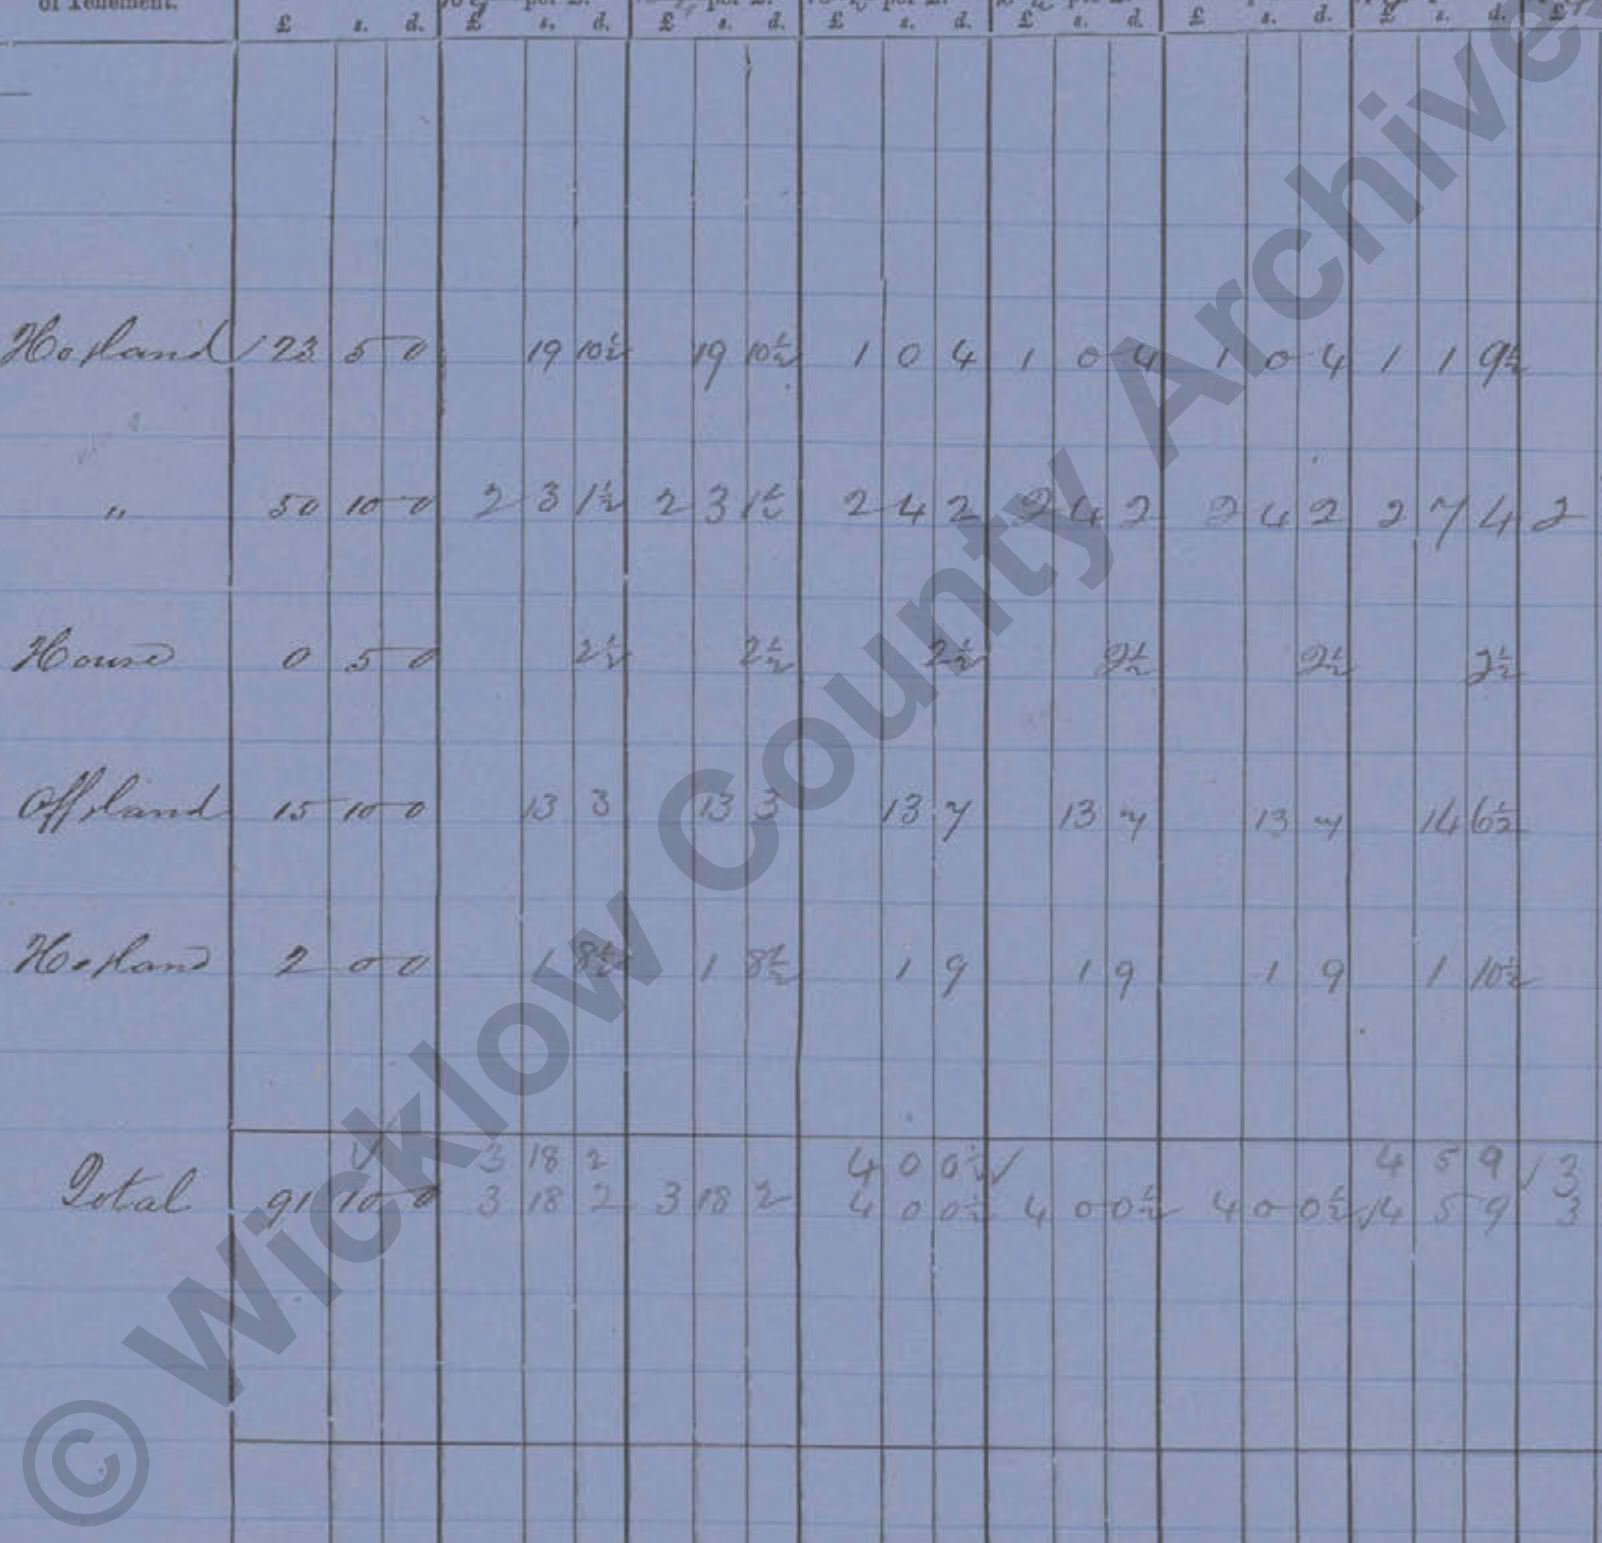 of Tenement.
£ s. d. £ s. d. £ s. d. £ s. d. £ s. d. £ s. d. £ s. d. £
Ho & land 23 5 0 19 10½ 19 10½ 1 0 4 1 0 4 1 0 4 1 1 9½
" 50 10 0 2 3 1½ 2 3 1½ 2 4 2 2 4 2 2 4 2 2 7 4 2
House 0 5 0 2½ 2½ 2½ 2½ 2½ 2½
Off & land 15 10 0 13 3 13 3 13 7 13 7 13 7 14 6½
Ho & land 2 0 0 1 8½ 1 8½ 1 9 1 9 1 9 1 10½
3 18 2 4 0 0½ ✓ 4 5 9 ✓ 3
Total 91 10 0 3 18 2 3 18 2 4 0 0½ 4 0 0½ 4 0 0½ 4 5 9 3
© Wicklow County Archive